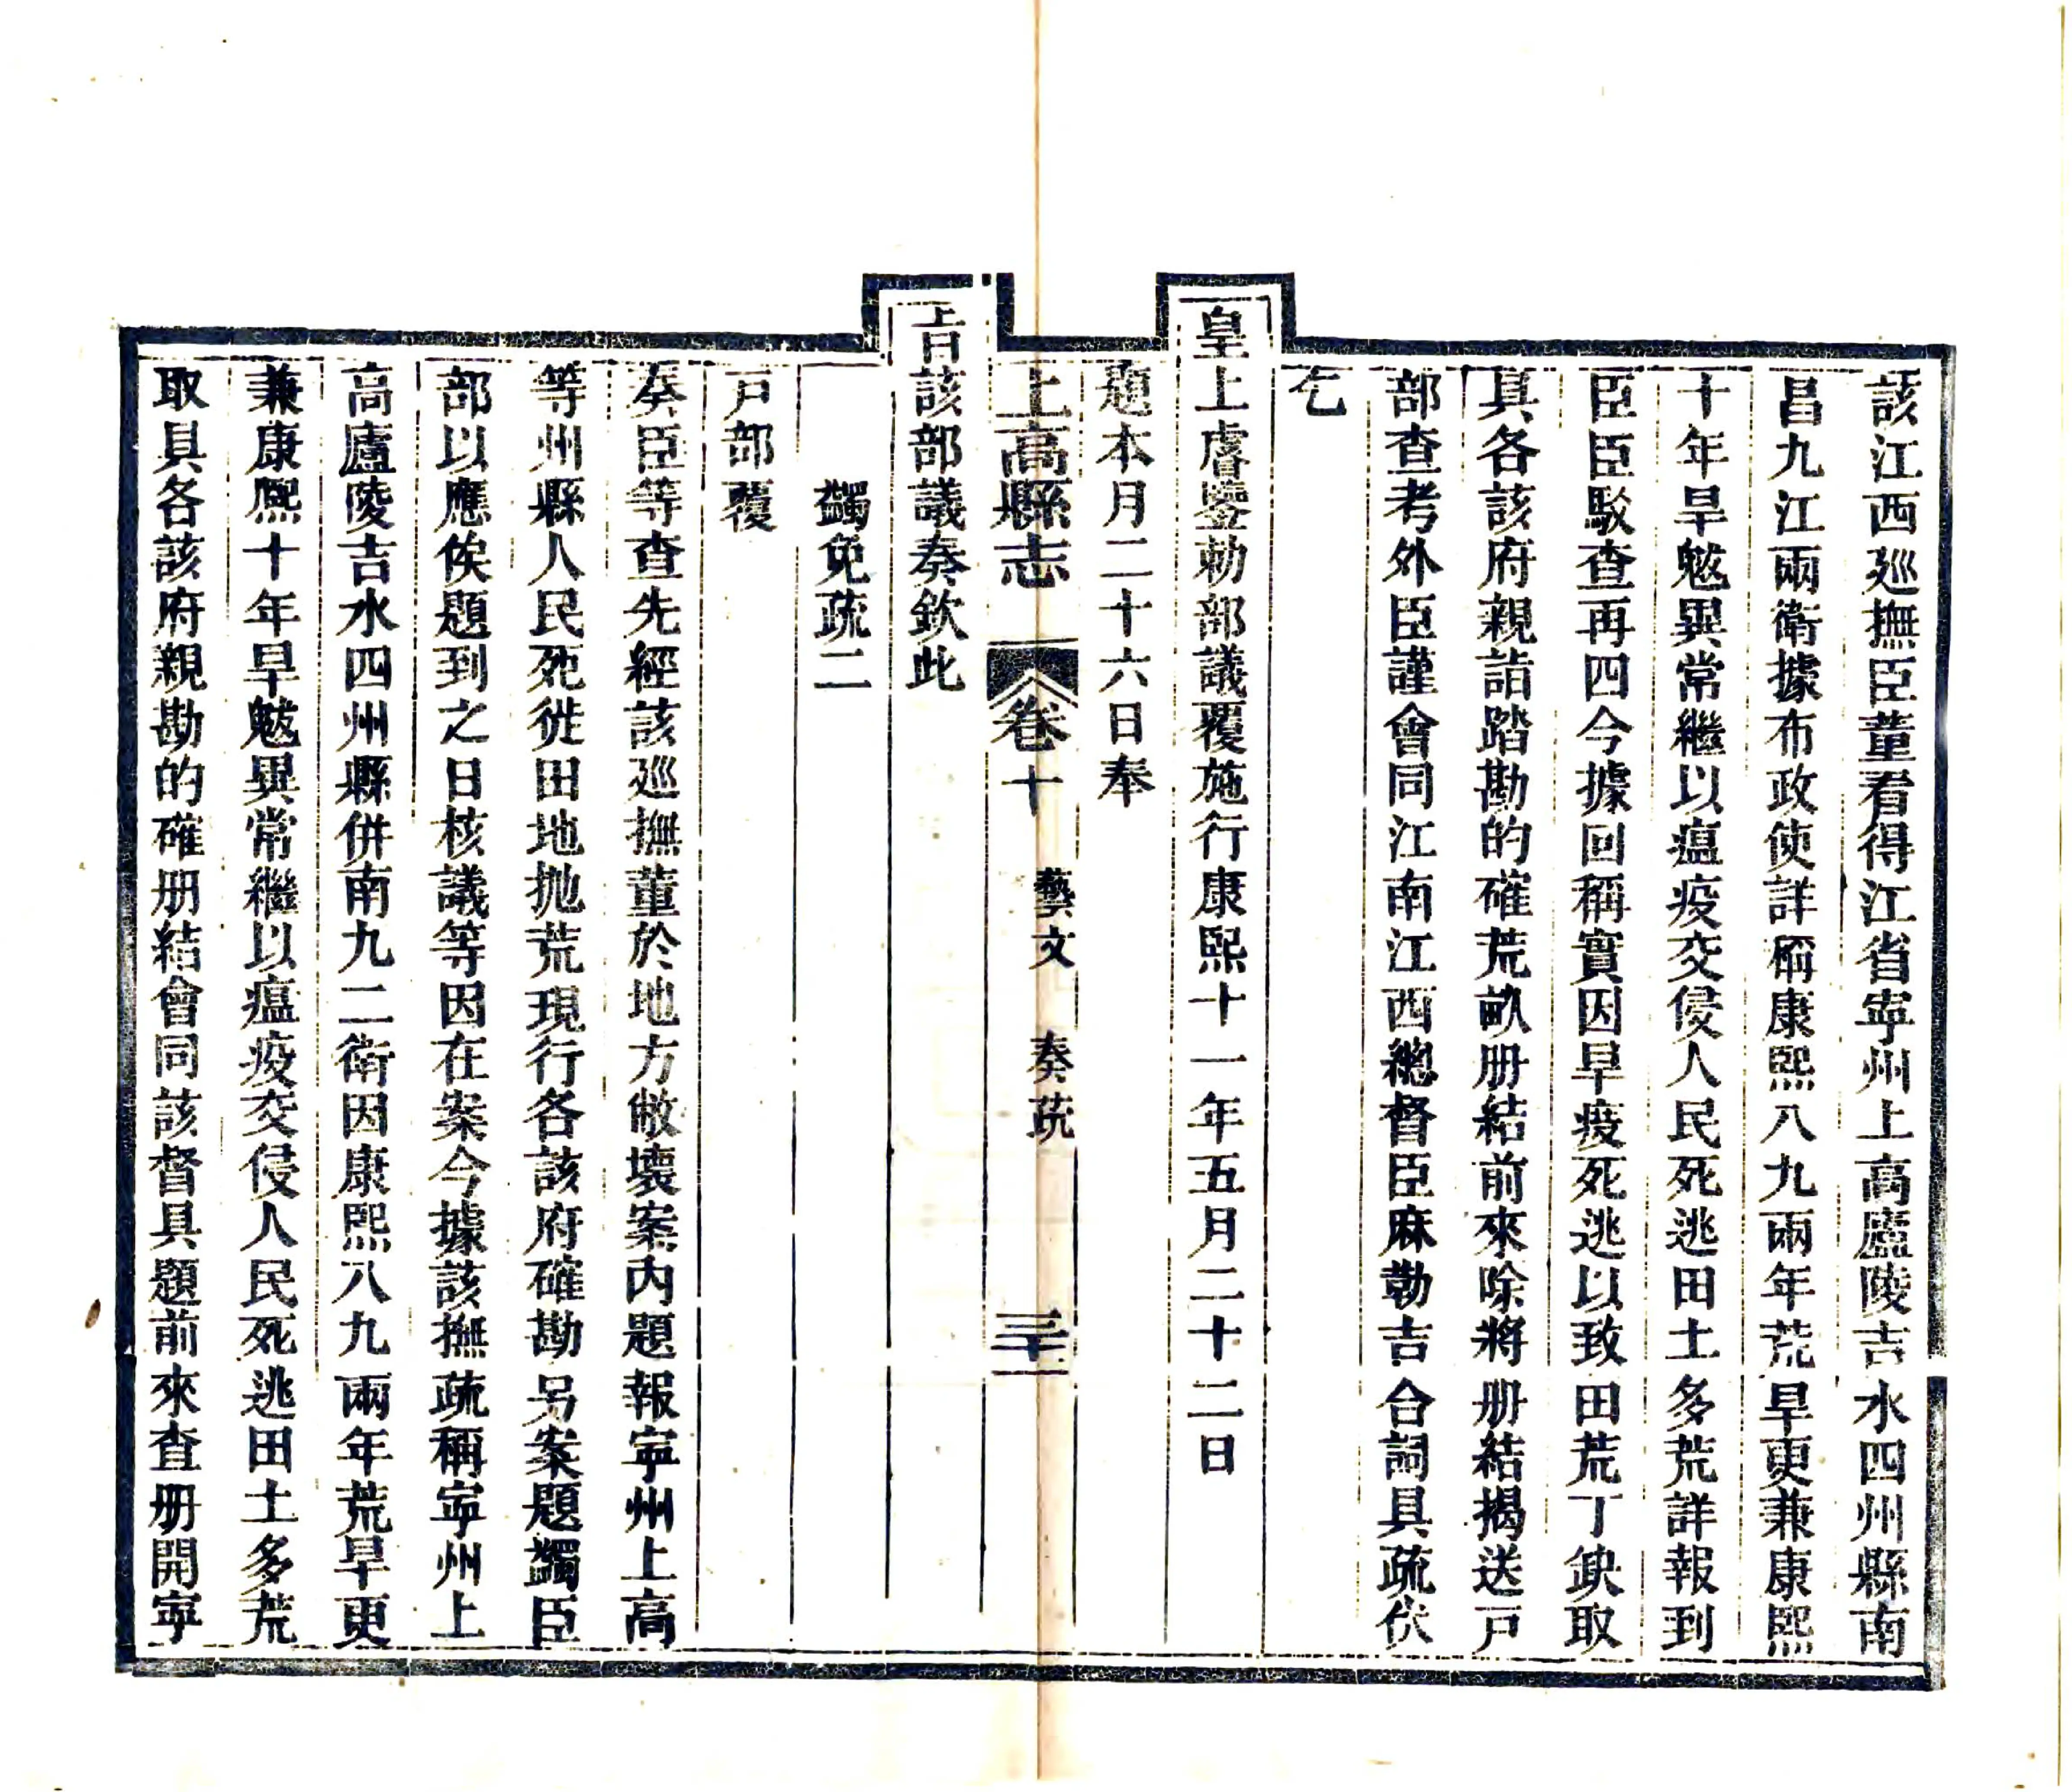 該江西廵撫臣董看得江省寕州上高廬陵吉水四州縣南
昌九江兩衛據布政使詳稱康熙八九兩年荒旱更兼康熙
十年旱魃異常繼以瘟疫交侵人民死逃田土多荒詳報到
臣臣駁查再四今據回稱實因旱疫死逃以致田荒丁缺取
具各該府親詣踏勘的確荒畝册結前來除將册結揭送戸
部查考外臣謹會同江南江西總督臣麻勒吉合詞具疏伏
乞
皇上睿鑒勅部議覆施行康熙十一年五月二十二日
題本月二十六日奉
上高縣志 卷十 藝文 奏疏 三十一
旨該部議奏欽此
蠲免疏二
戸部覆
奏臣等查先經該廵撫董於地方敝壞案內題報寕州上高
等州縣人民死徙田地抛荒現行各該府確勘另案題蠲臣
部以應俟題到之日核議等因在案今據該撫疏稱寕州上
高廬陵吉水四州縣併南九二衛因康熙八九兩年荒旱更
兼康熙十年旱魃異常繼以瘟疫交侵人民死逃田土多荒
取具各該府親勘的確册結會同該督具題前來查册開寕